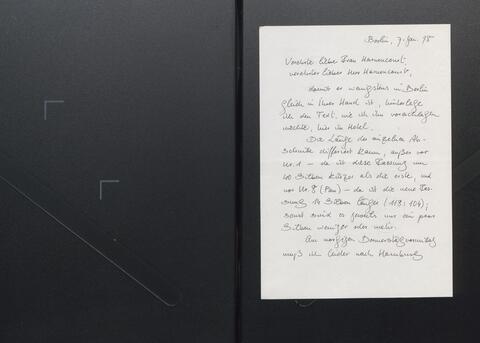 Berlin, 7. Jan. 98
Verehrte liebe Frau Harnoncourt,
verehrter lieber Herr Harnoncourt,
damit er wenigstens in Berlin
gleich in Ihrer Hand ist, hinterlege
ich den Text, wie ich ihn vorschlagen
möchte, hier im Hotel.
Die Länge der einzelnen Ab-
schnitte differiert kaum, außer vor
Nr. 1 – da ist diese Fassung um
40 Silben kürzer als die erste, und
vor Nr. 8 (Pan) – da ist die neue Fas-
sung 14 Silben länger (118:104);
sonst sind es jeweils nur ein paar
Silben weniger oder mehr.
Am morgigen Donnerstagvormittag
muß ich leider nach Hamburg